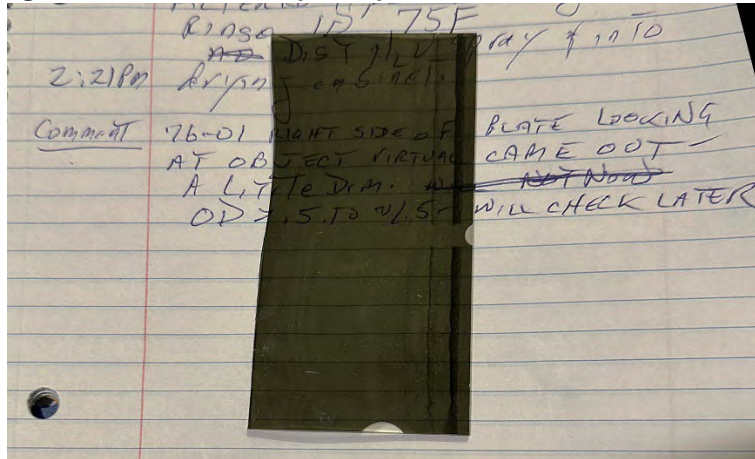 Rinse ID 75F
DIST H2O spray & into
2:21Pm drying cabinet.
Comment 76-01 RIGHT SIDE OF PLATE LOOKING
AT OBJECT VIRTUAL CAME OUT -
A LITTLE DIM. NOT NOW
OD >.5 TO ~1.5 - WILL CHECK LATER